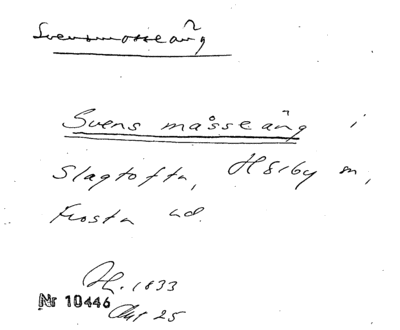 Svensmosseäng
Svens måsseäng i
Slagtofta, Hörby sn,
Frosta hd.
H. 1833
Nr 10446
Akt 25